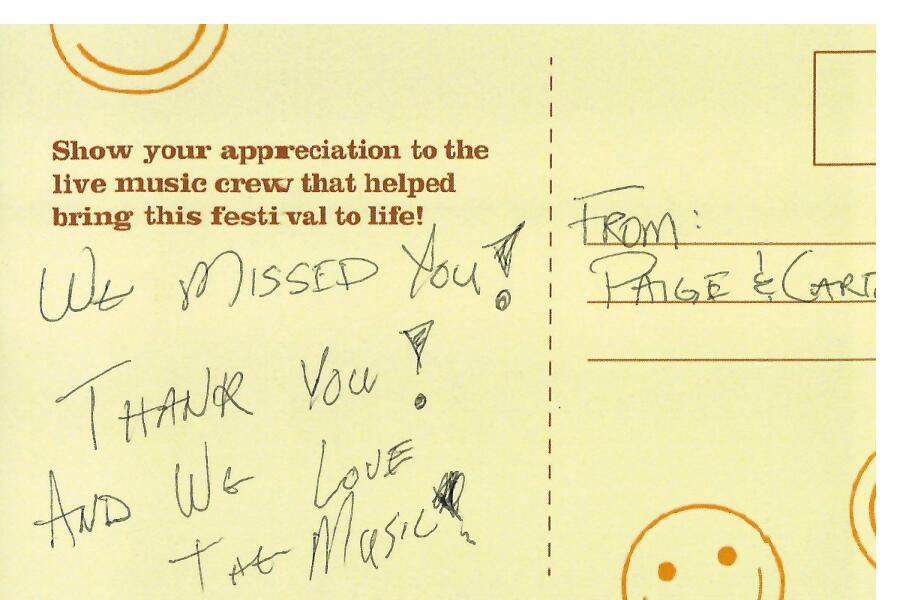 Show your appreciation to the
live music crew that helped
bring this festival to life!
WE MISSED YOU!
THANK YOU!
AND WE LOVE
THE MUSIC!
FROM:
PAIGE &